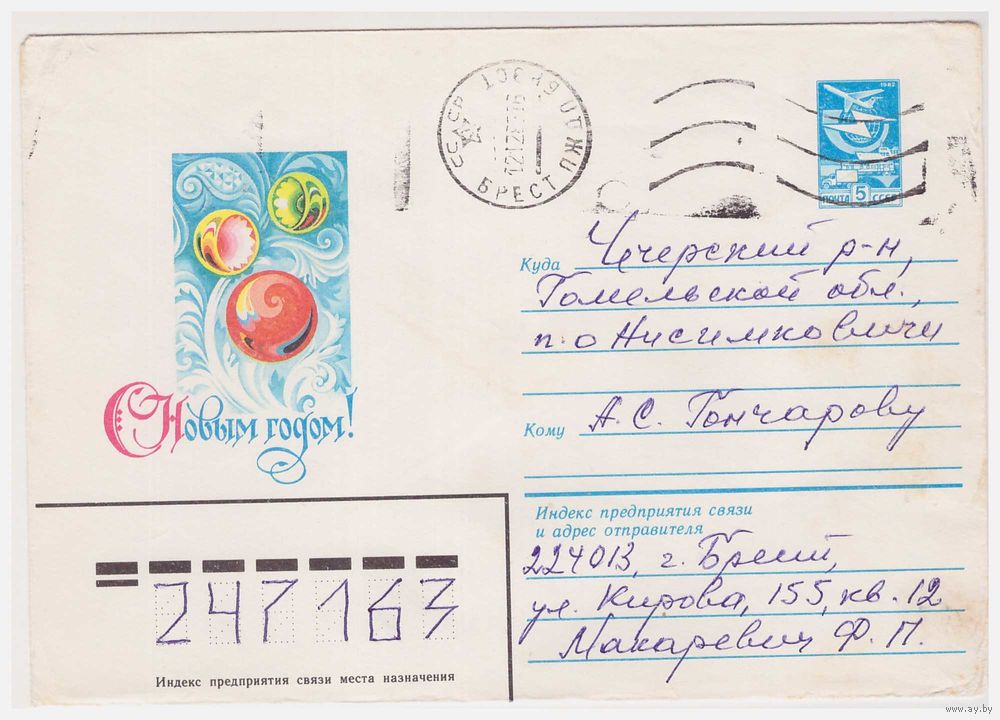 СССР БРЕСТ ПОЖД БРЭСТ
1982
ПОЧТА 5 СССР
Куда Чечерский р-н,
Гомельской обл.,
п.о Нисимковичи
Кому А.С. Гончарову
С Новым годом!
Индекс предприятия связи
и адрес отправителя
224013, г. Брест,
ул. Кирова, 155, кв. 12
Макаревич Ф.П.
247163
Индекс предприятия связи места назначения
www.ay.by